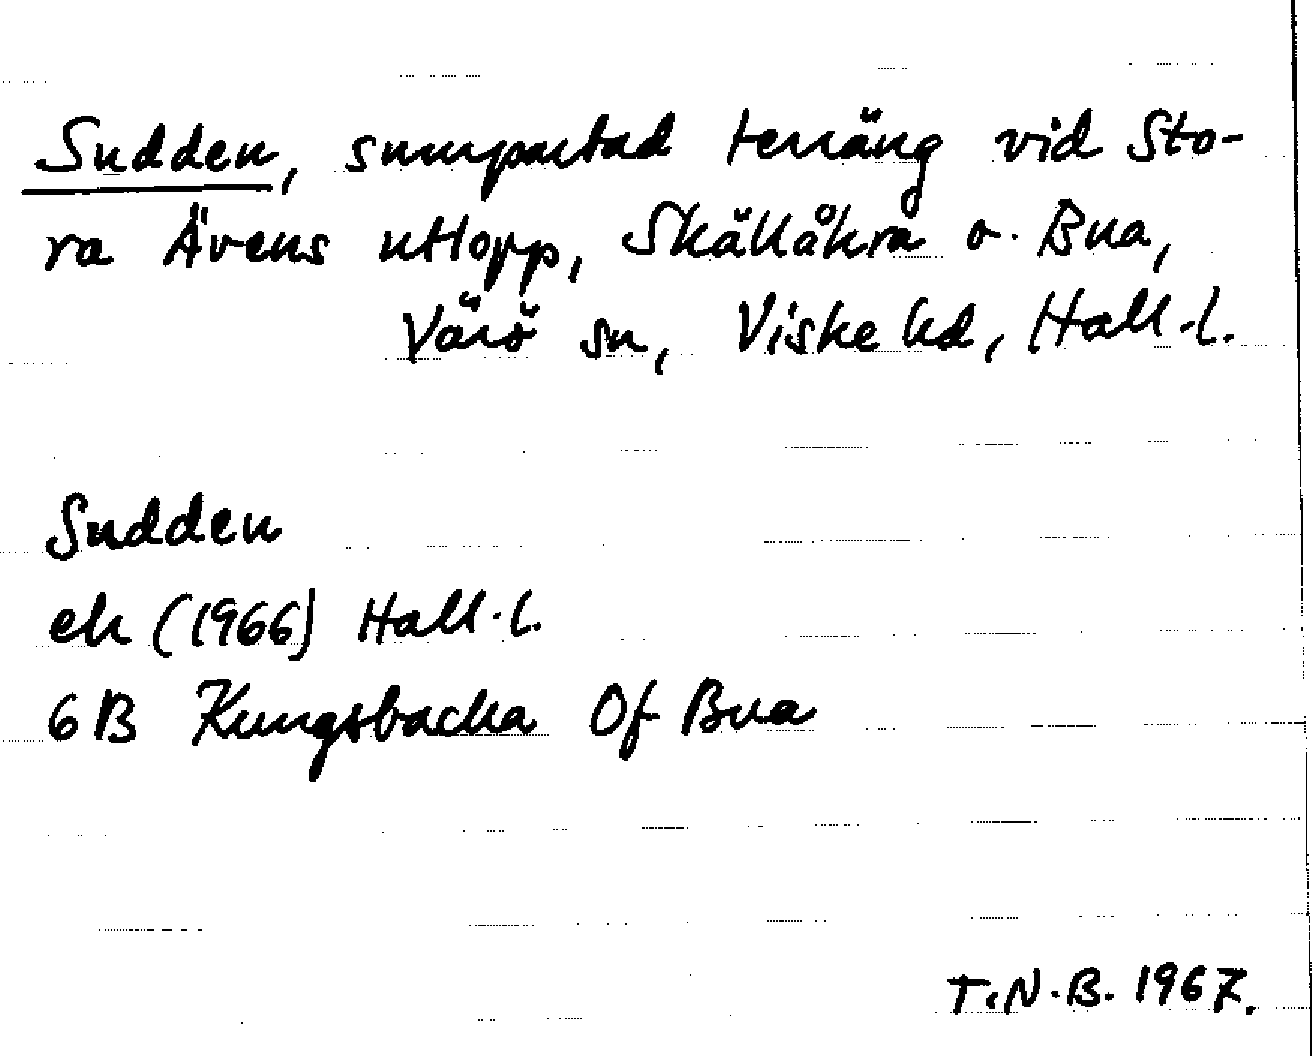 Sudden, sumpartad terräng vid Sto-
ra Ävens utlopp, Skällåkra o. Bua,
Värö sn, Viske hd, Hall.l.
Sudden
ek (1966) Hall.l.
6B Kungsbacka 0f Bua
T.N.B. 1967.